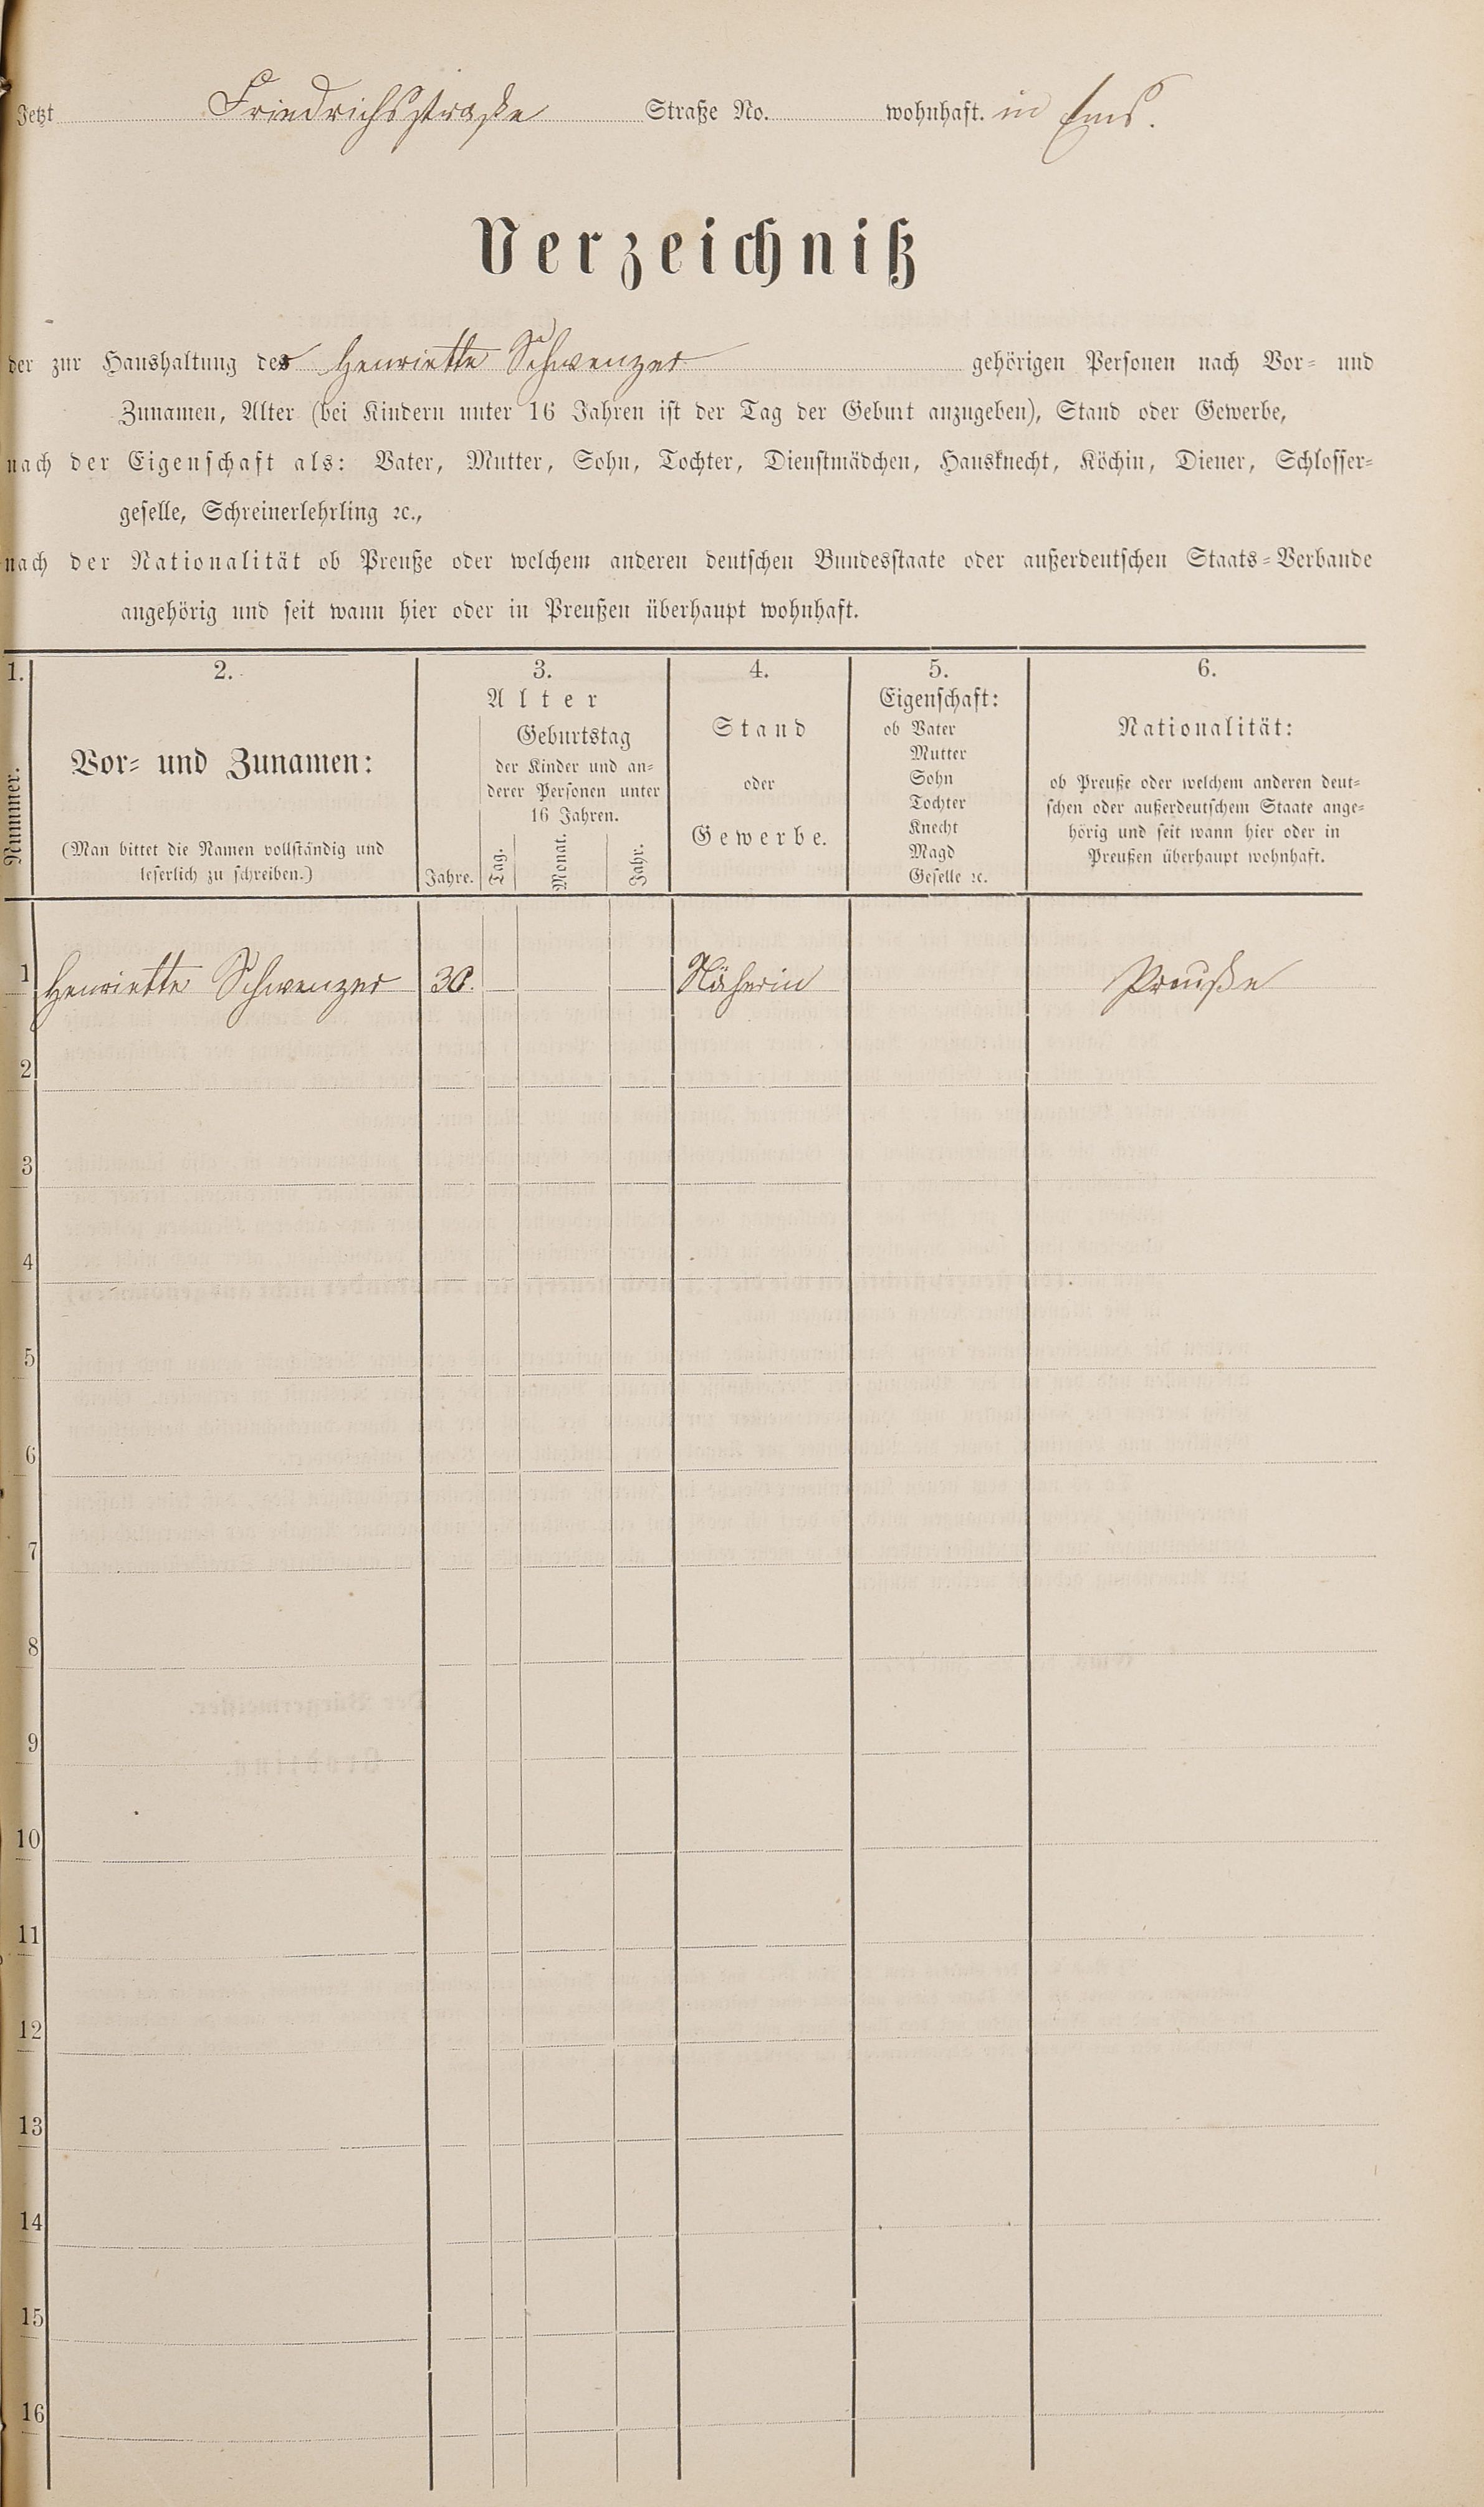 Jetzt Friedrichsstraße Straße No. wohnhaft. in Ems.
Verzeichniß
der zur Haushaltung der Henriette Schwenzer gehörigen Personen nach Vor- und
Zunamen, Alter (bei Kindern unter 16 Jahren ist der Tag der Geburt anzugeben), Stand oder Gewerbe,
nach der Eigenschaft als: Vater, Mutter, Sohn, Tochter, Dienstmädchen, Hausknecht, Köchin, Diener, Schlosser-
geselle, Schreinerlehrling ꝛc.,
nach der Nationalität ob Preuße oder welchem anderen deutschen Bundesstaate oder außerdeutschen Staats-Verbande
angehörig und seit wann hier oder in Preußen überhaupt wohnhaft.
1.
Nummer.
2.
Vor- und Zunamen:
(Man bittet die Namen vollständig und
leserlich zu schreiben.)
3.
Alter
Jahre.
Geburtstag
der Kinder und an-
derer Personen unter
16 Jahren.
Tag.
Monat.
Jahr.
4.
Stand
oder
Gewerbe.
5.
Eigenschaft:
ob Vater
Mutter
Sohn
Tochter
Knecht
Magd
Geselle ꝛc.
6.
Nationalität:
ob Preuße oder welchem anderen deut-
schen oder außerdeutschem Staate ange-
hörig und seit wann hier oder in
Preußen überhaupt wohnhaft.
1 Henriette Schwenzer 30. Näherin Preuße
2
3
4
5
6
7
8
9
10
11
12
13
14
15
16